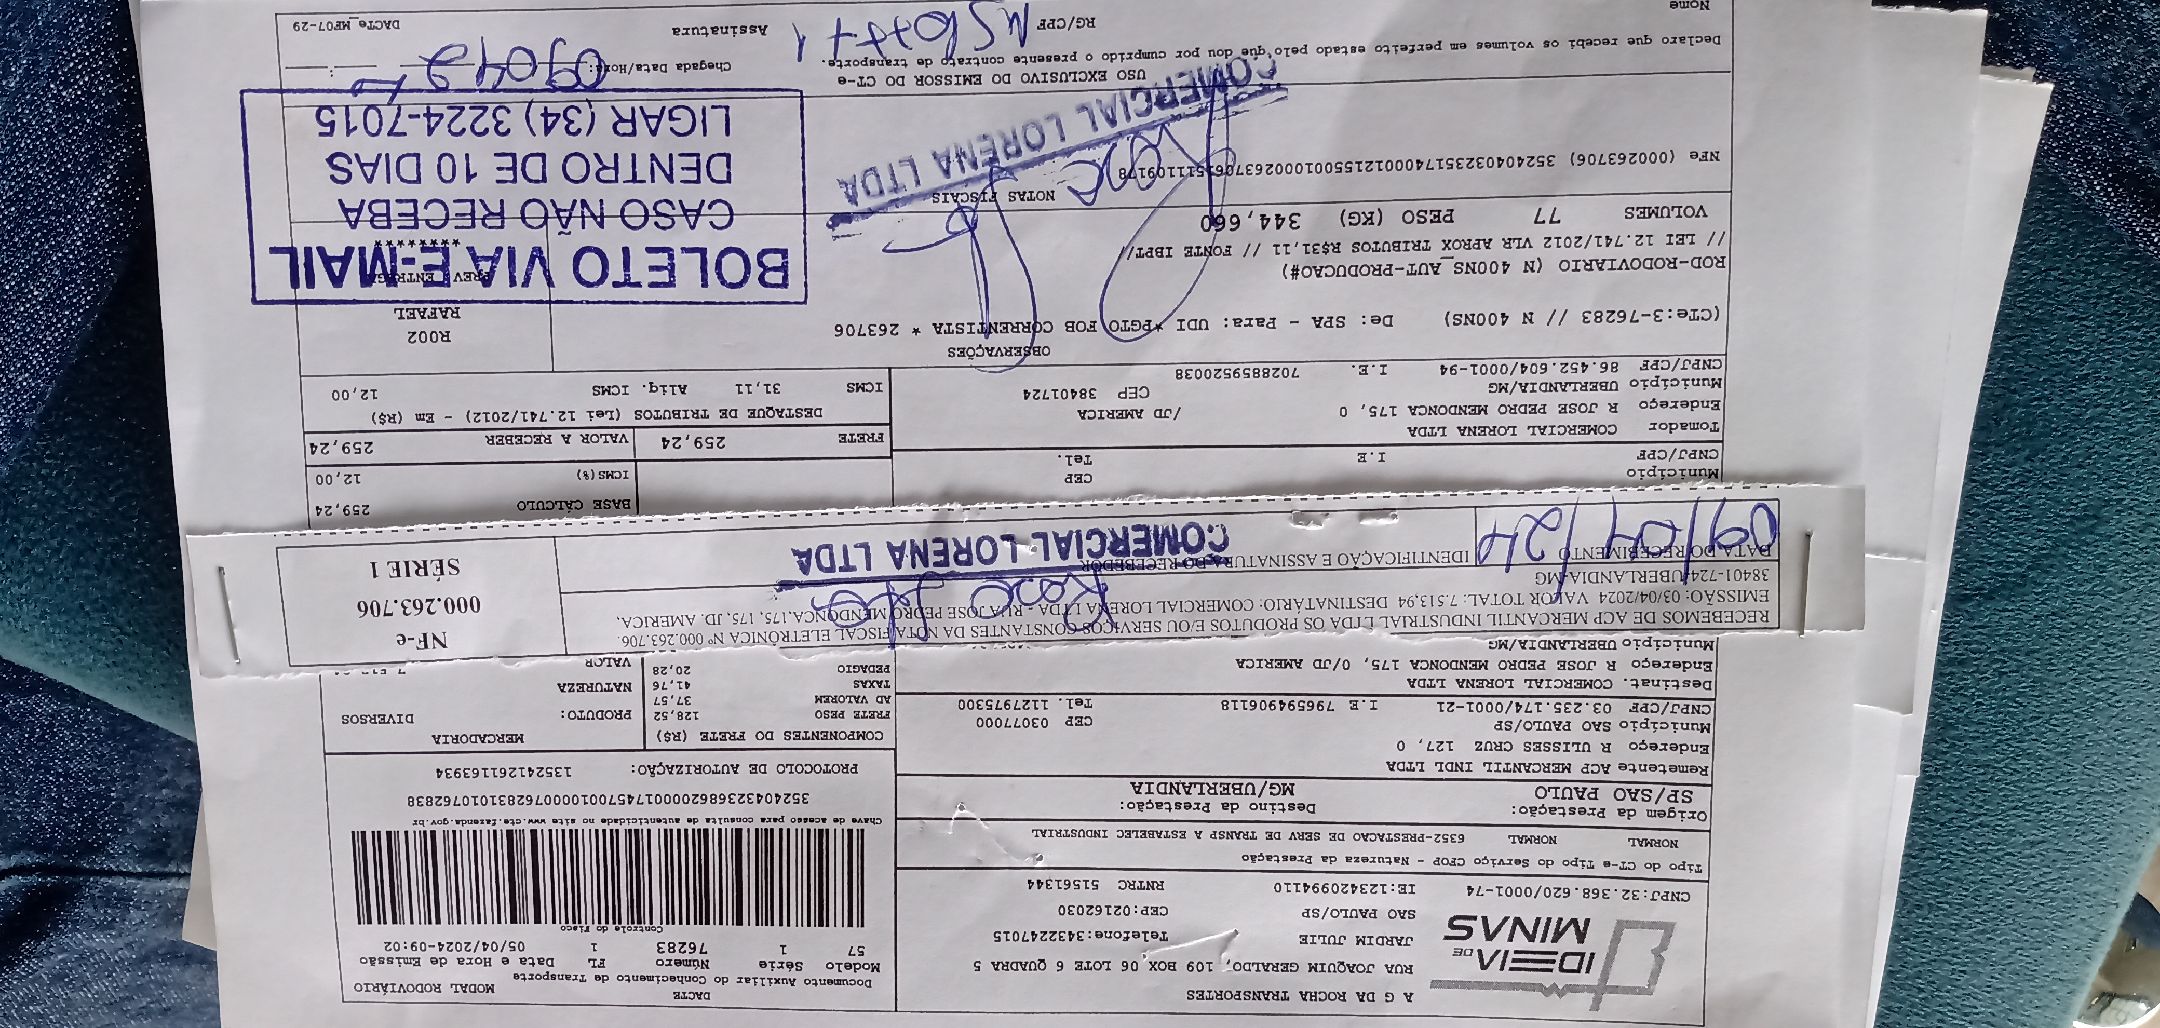 A G DA ROCHA TRANSPORTES
RUA JOAQUIM GERALDO, 109 BOX 06 LOTE 6 QUADRA 5
JARDIM JULIE Telefone:3432247015
SAO PAULO/SP CEP:02162030
IDEIA DE MINAS
CNPJ:32.368.620/0001-74 IE:123420994110 RNTRC 51561344
DACTE MODAL RODOVIÁRIO
Documento Auxiliar do Conhecimento de Transporte
Modelo Série Número FL Data e Hora de Emissão
57 1 76283 1 05/04/2024-09:02
Controle do Fisco
Chave de acesso para consulta de autenticidade no site www.cte.fazenda.gov.br
35240432368620000174570010000762831010762838
PROTOCOLO DE AUTORIZAÇÃO: 135241261163934
Tipo do CT-e Tipo do Serviço CFOP - Natureza da Prestação
NORMAL NORMAL 6352-PRESTACAO DE SERV DE TRANSP A ESTABELEC INDUSTRIAL
Origem da Prestação: Destino da Prestação:
SP/SAO PAULO MG/UBERLANDIA
Remetente ACP MERCANTIL INDL LTDA
Endereço R ULISSES CRUZ 127, 0
Município SAO PAULO/SP CEP 03077000
CNPJ/CPF 03.235.174/0001-21 I.E 796594906118 Tel. 1127975300
Destinat. COMERCIAL LORENA LTDA
Endereço R JOSE PEDRO MENDONCA 175, 0/JD AMERICA
Município UBERLANDIA/MG
COMPONENTES DO FRETE (R$) MERCADORIA
FRETE PESO 128,52 PRODUTO: DIVERSOS
AD VALOREM 37,57
TAXAS 41,76 NATUREZA
PEDAGIO 20,28 VALOR
RECEBEMOS DE ACP MERCANTIL INDUSTRIAL LTDA OS PRODUTOS E/OU SERVIÇOS CONSTANTES DA NOTA FISCAL ELETRÔNICA Nº 000.263.706.
EMISSÃO: 03/04/2024 VALOR TOTAL: 7.513,94 DESTINATÁRIO: COMERCIAL LORENA LTDA - RUA JOSE PEDRO MENDONCA,175, 175, JD. AMERICA,
38401-724-UBERLANDIA-MG
DATA DO RECEBIMENTO IDENTIFICAÇÃO E ASSINATURA DO RECEBEDOR
09/04/24
COMERCIAL LORENA LTDA
NF-e
000.263.706
SÉRIE 1
Município CEP
CNPJ/CPF I.E Tel.
BASE CÁLCULO 259,24
ICMS(%) 12,00
Tomador COMERCIAL LORENA LTDA
Endereço R JOSE PEDRO MENDONCA 175, 0 /JD AMERICA
Município UBERLANDIA/MG CEP 38401724
CNPJ/CPF 86.452.604/0001-94 I.E. 7028859520038
FRETE 259,24 VALOR A RECEBER 259,24
DESTAQUE DE TRIBUTOS (Lei 12.741/2012) - Em (R$)
ICMS 31,11 Aliq. ICMS 12,00
OBSERVAÇÕES
(CTe:3-76283 // N 400NS) De: SPA - Para: UDI *PGTO FOB CORRENTISTA * 263706
R002
RAFAEL
ROD-RODOVIARIO (N 400NS_AUT-PRODUCAO#)
// LEI 12.741/2012 VLR APROX TRIBUTOS R$31,11 // FONTE IBPT//
PREV. ENTREGA
********
VOLUMES 77 PESO (KG) 344,660
NOTAS FISCAIS
NFe (000263706) 35240403235174000121550010002637061511109178
BOLETO VIA E-MAIL
CASO NÃO RECEBA
DENTRO DE 10 DIAS
LIGAR (34) 3224-7015
COMERCIAL LORENA LTDA
USO EXCLUSIVO DO EMISSOR DO CT-e
Declaro que recebi os volumes em perfeito estado pelo que dou por cumprido o presente contrato de transporte.
Chegada Data/Hora:
Nome RG/CPF Assinatura DACTe_MF07-29